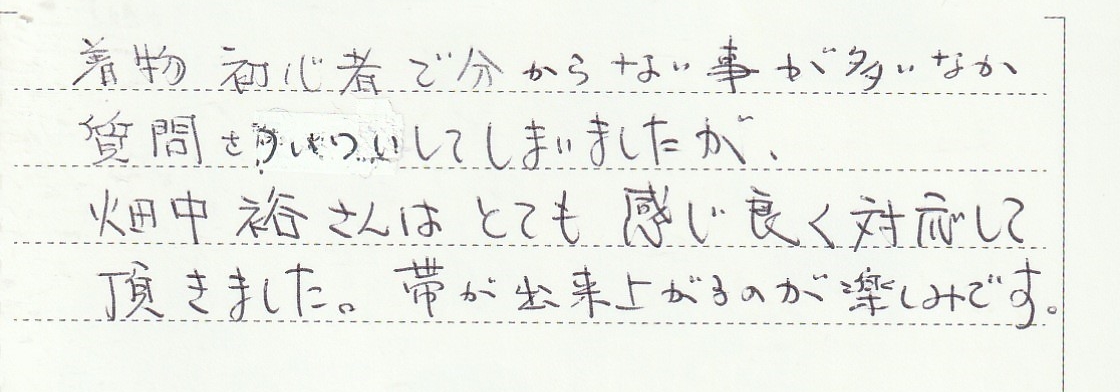 着物 初心者で分からない事が多いなか
質問をしてしまいましたが、
畑中裕さんはとても感じ良く対応して
頂きました。帯が出来上がるのが楽しみです。